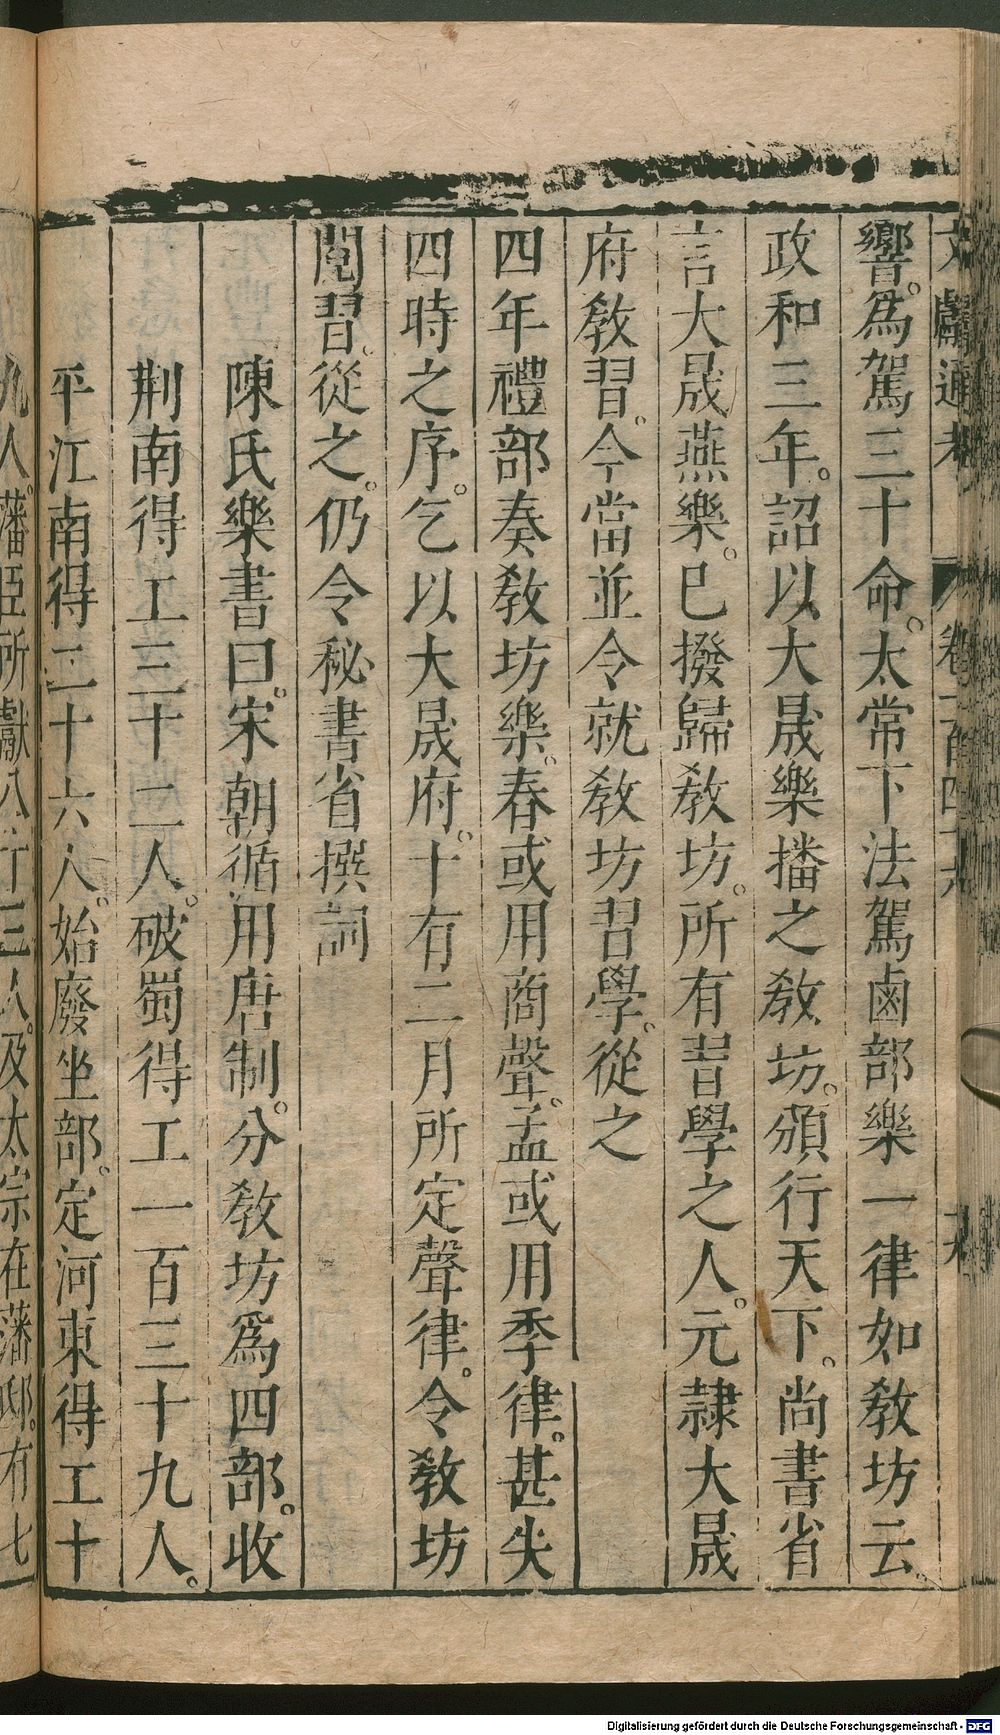 文獻通考 卷一百四十六
響。為駕三十命。太常下法駕鹵部樂一律如教坊云。
政和三年。詔以大晟樂播之教坊。頒行天下。尚書省
言大晟燕樂。已撥歸教坊。所有習學之人。元隷大晟
府教習。今當並令就教坊習學。從之
四年禮部奏教坊樂。春或用商聲。孟或用季律。甚失
四時之序。乞以大晟府。十有二月所定聲律。令教坊
閱習。從之。仍令秘書省撰詞
陳氏樂書曰。宋朝循用唐制。分教坊為四部。收
荆南得工三十二人。破蜀得工一百三十九人。
平江南得工十六人。始廢坐部。定河東得工十
九人。藩臣所獻八十三人。及太宗在藩邸。有七
Digitalisierung gefördert durch die Deutsche Forschungsgemeinschaft - DFG